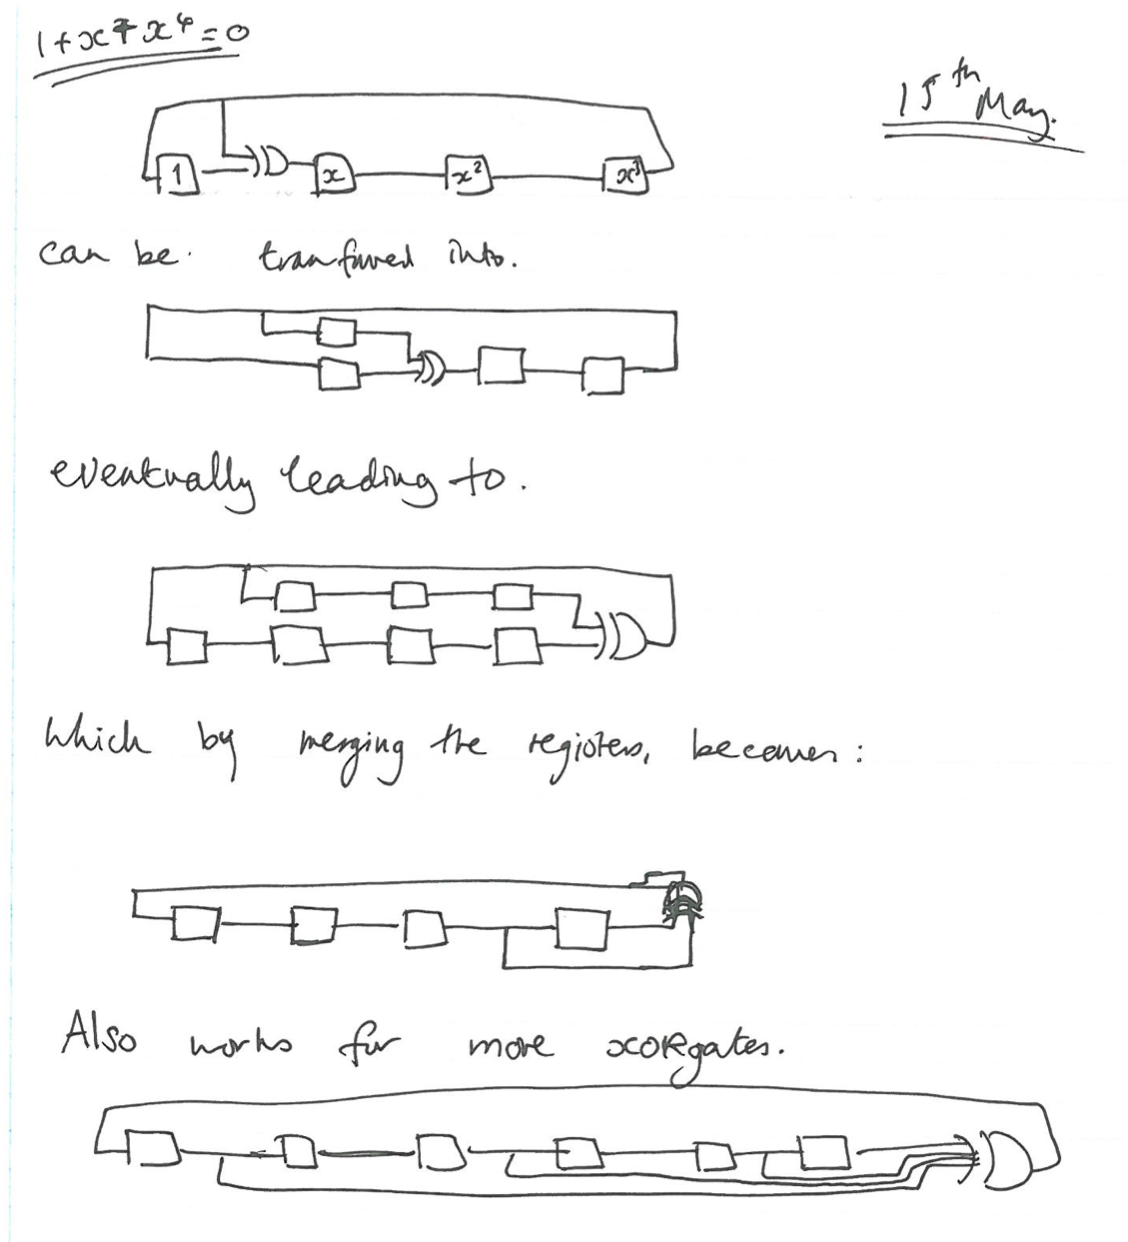 1+x+x⁴=0
15th May.
1 x x² x³
can be. transfured into.
eventually leading to.
Which by merging the registers, becomes:
Also works for more xORgates.